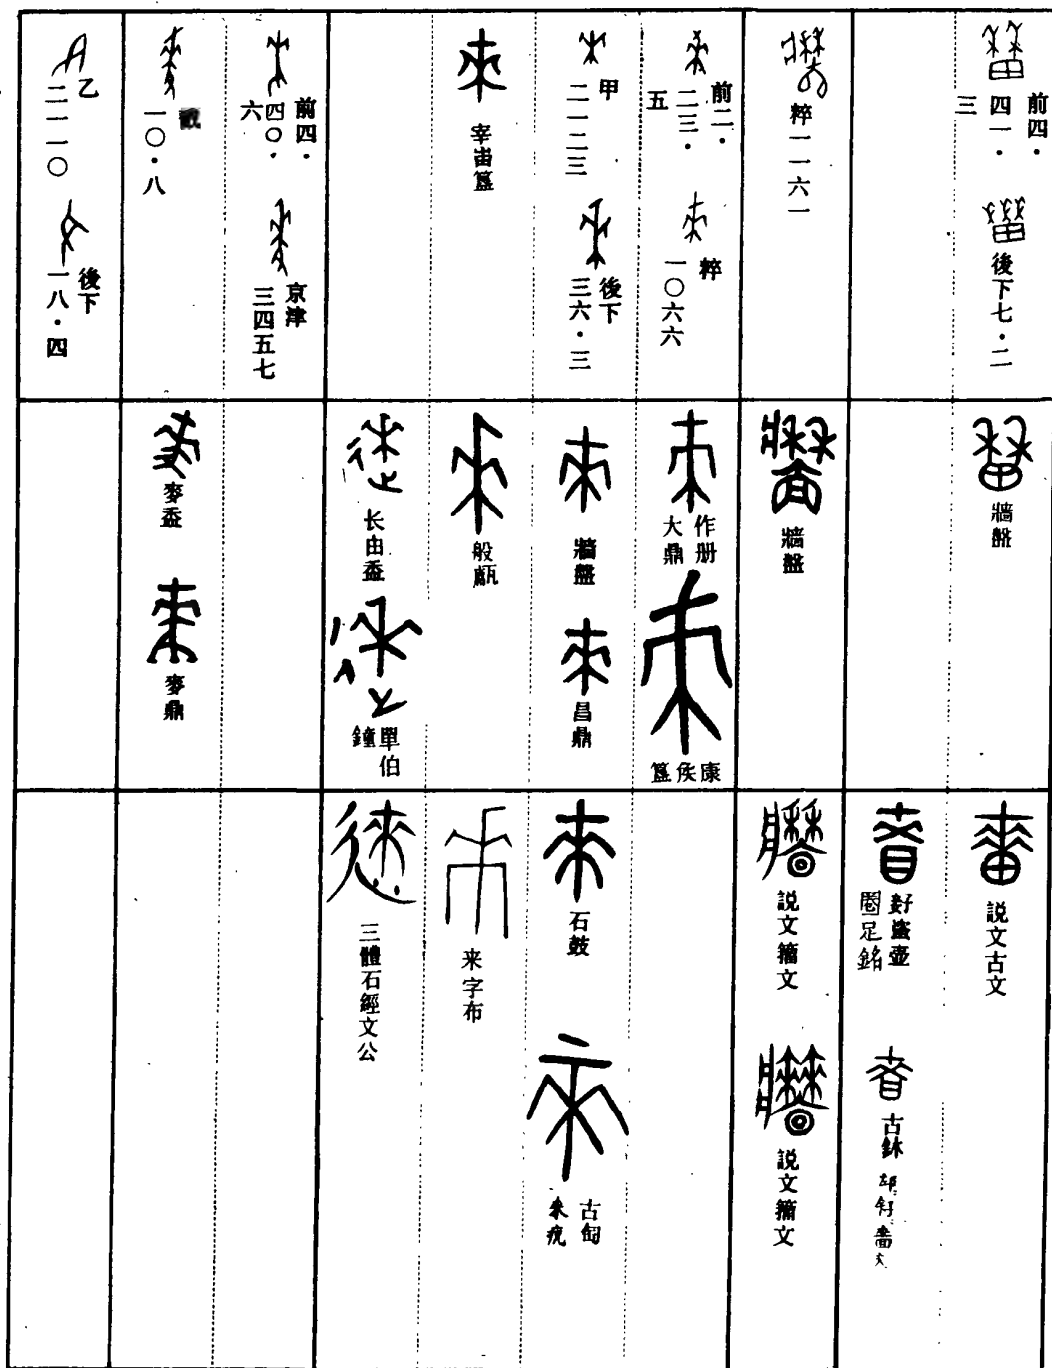 前四・
四一・
三
後下七・二
粹一一六一
前二・
二三・
五
粹
一〇六六
甲
二一二三
後下
三六・三
宰甾簋
前四・
四〇・
六
京津
三四五七
一〇・八
乙
二一一〇
後下
一八・四
牆盤
牆盤
作册
大鼎
康侯簋
牆盤
昌鼎
般甗
长由盉
單伯
鐘
麥盉
麥鼎
説文古文
好盗壺
圈足銘
古鉥
説文籀文
説文籀文
石鼓
古匋
来字布
三體石經文公